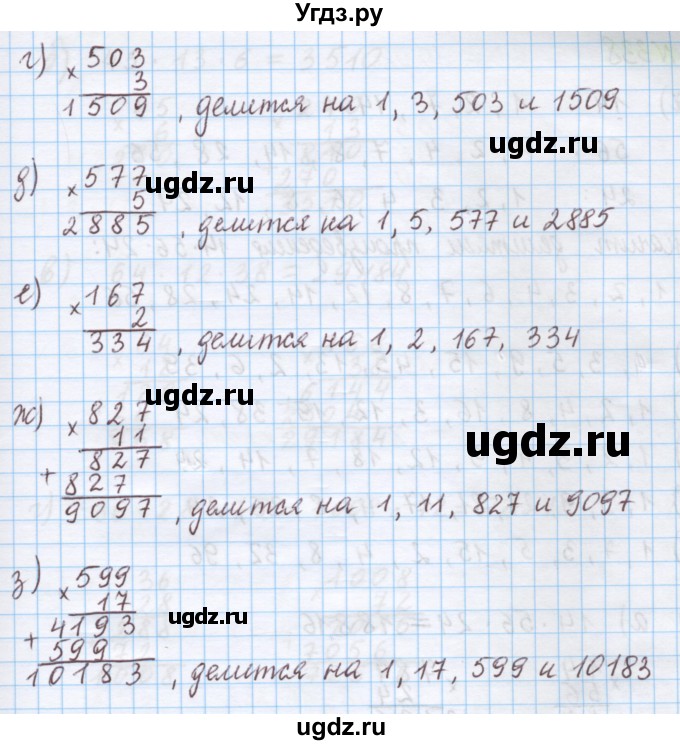 Угдз.ру
г) × 503
3
1509 , делится на 1, 3, 503 и 1509
ugdz.ru
д) × 577
ugdz.ru
5
2885 , делится на 1, 5, 577 и 2885
е) × 167
2
334 , делится на 1, 2, 167, 334
ugdz.ru
ж) × 827
11
ugdz.ru
827
+ 827
9097 , делится на 1, 11, 827 и 9097
з) × 599
17
ugdz.ru
4193
+ 599
10183 , делится на 1, 17, 599 и 10183
ugdz.ru
ugdz.ru